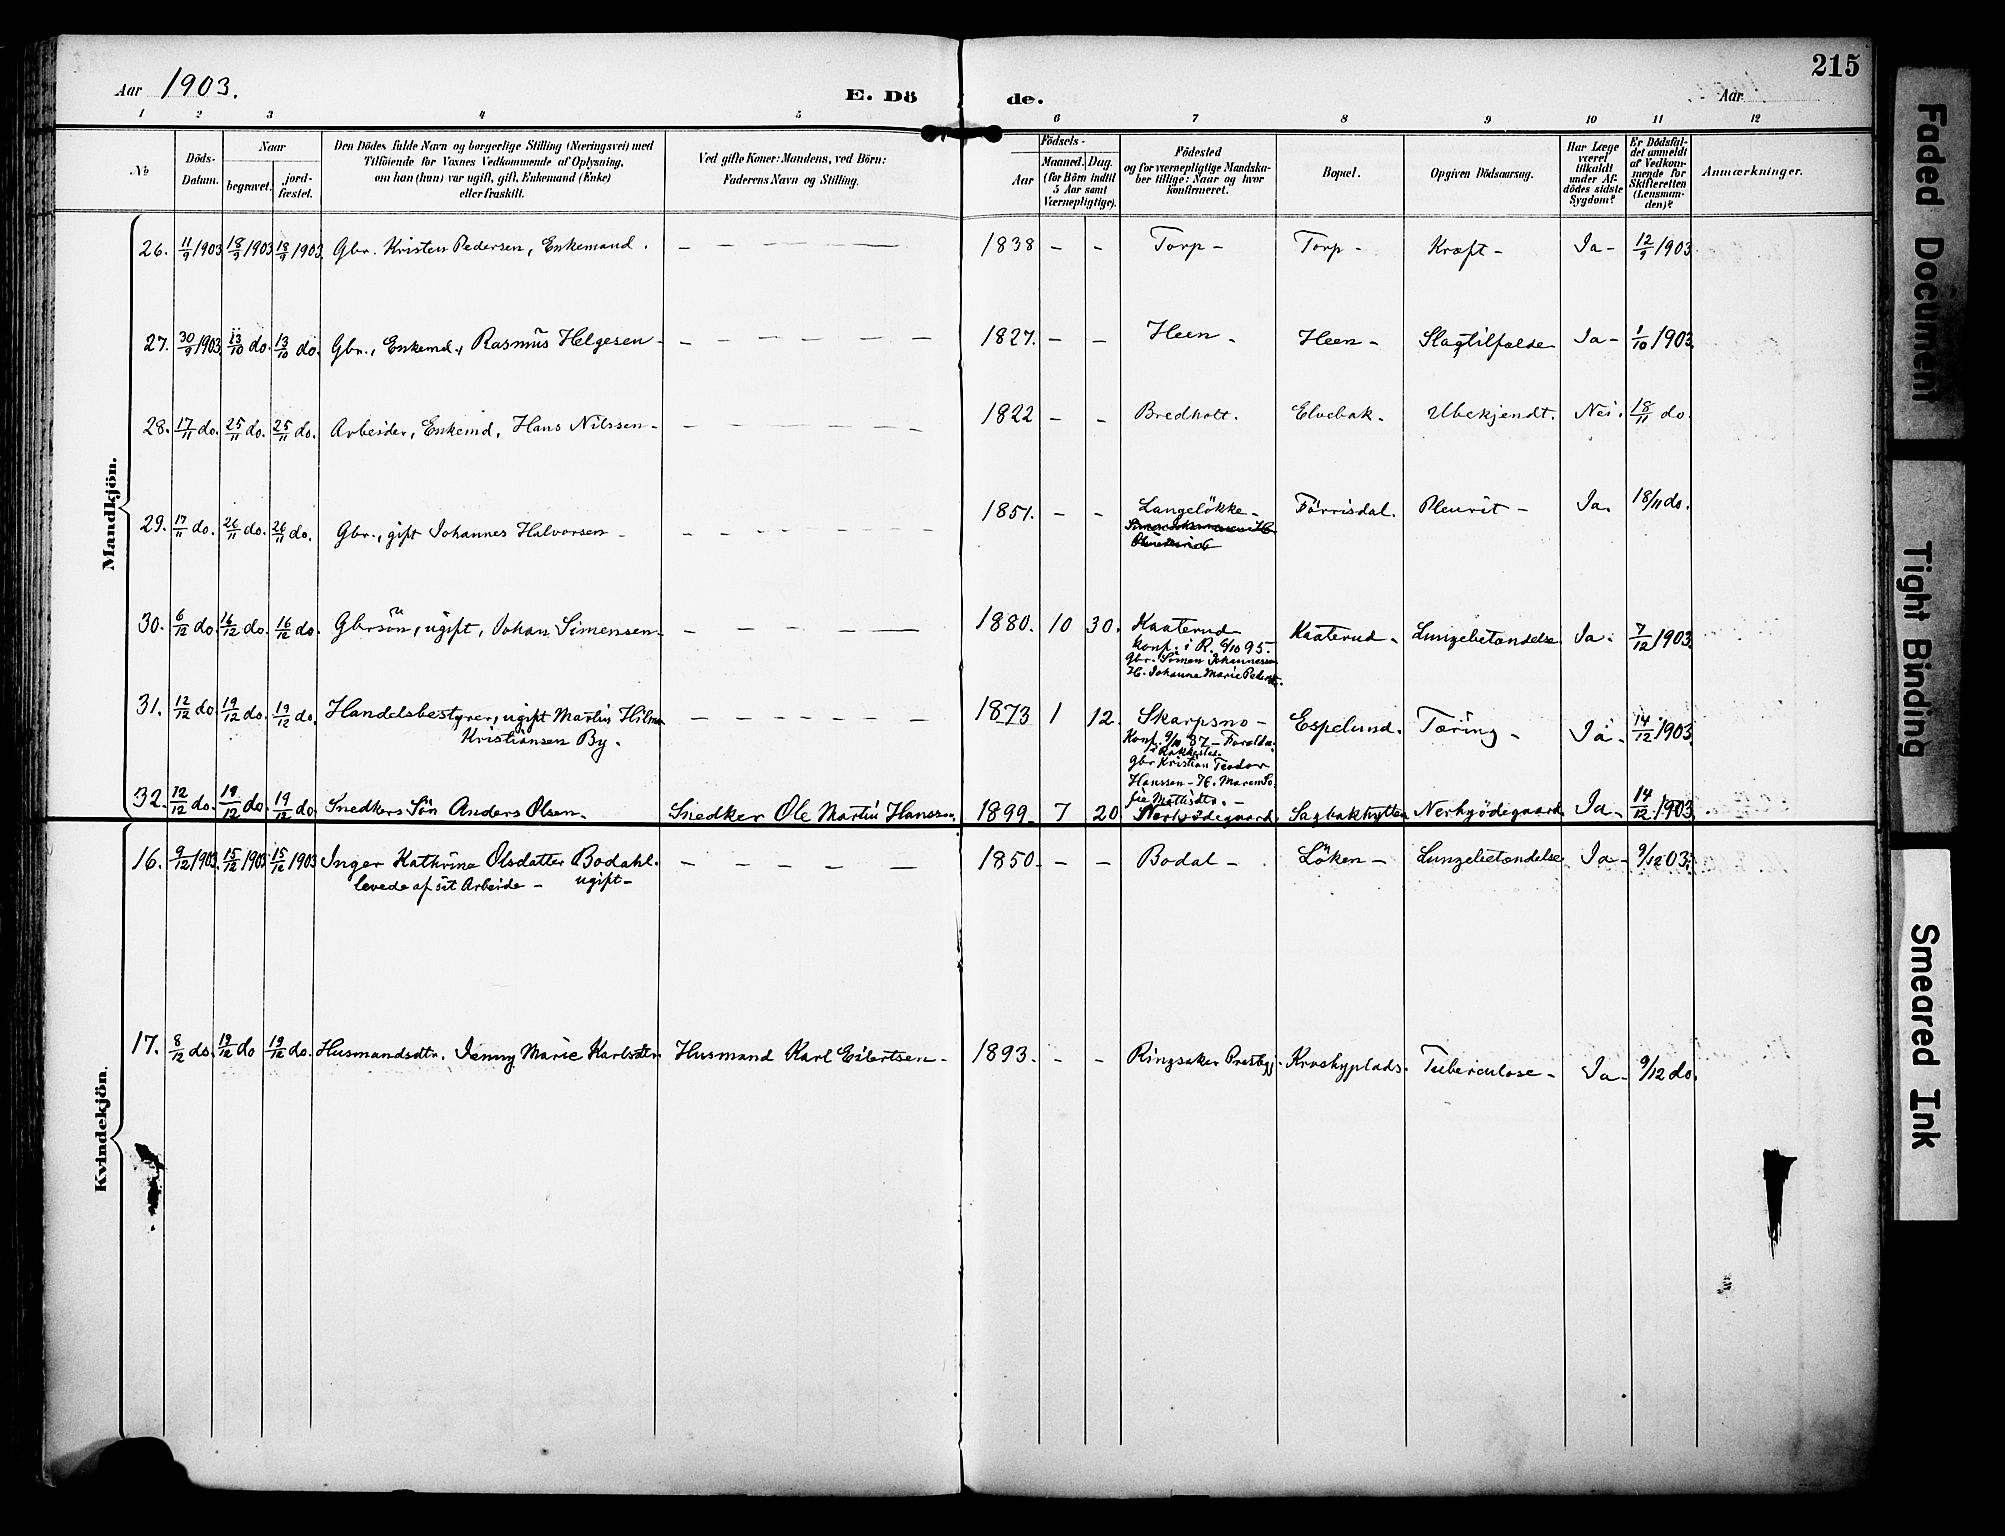 Aar 1903.
E. Döde.
Aar
215
1 2 3 4 5 6 7 8 9 10 11 12
No
Döds-Datum.
Naar
begravet.
jord-fæstet.
Den Dödes fulde Navn og borgerlige Stilling (Næringsvei) med
Tilföiende for Voxnes Vedkommende af Oplysning,
om han (hun) var ugift, gift, Enkemand (Enke)
eller fraskilt.
Ved gifte Koner: Mandens, ved Börn:
Faderens Navn og Stilling.
Födsels-
Aar
Maaned. Dag.
(for Börn indtil
5 Aar samt
Værnepligtige).
Födested
og for værnepligtige Mandska-
ber tillige: Naar og hvor
konfirmeret.
Bopæl.
Opgiven Dödsaarsag.
Har Læge
været
tilkaldt
under Af-
dödes sidste
Sygdom?
Er Dödsfal-
det anmeldt
af Vedkom-
mende for
Skifteretten
(Lensman-
den)?
Anmærkninger.
Mandkjön.
26. 11/9 1903 18/9 1903 18/9 1903. Gbr. Kristen Pedersen, Enkemand. — — — — — 1838 — — Torp — Torp — Kræft — Ja — 12/9 1903
27. 30/9 1903 13/10 do. 13/10 do. Gbr., Enkemd., Rasmus Helgesen — — — — — — 1827. — — Heen — Heen — Slagtilfælde Ja — 1/10 1903.
28. 17/11 do. 25/11 do. 25/11 do. Arbeider, Enkemd, Hans Nilssen — — — — — — 1822 — — Bredholt. Elvebak. Ubekjendt. Nei. 18/11 do.
29. 17/11 do. 26/11 do. 26/11 do. Gbr., gift Johannes Halvorsen — — — — — — 1851. — — Langelökke — Förrisdal. Pleurit — Ja. 18/11 do.
30. 6/12 do. 16/12 do. 16/12 do. Gbrsön, ugift, Johan Simensen — — — — — 1880. 10 30. Kaaterud Kaaterud — Lungebetændelse Ja. 7/12 1903.
Konf. i R. 6/10 95.
Gbr. Simen Johannessen
H. Johanne Marie Peders
31. 12/12 do. 19/12 do. 19/12 do. Handelsbestyrer, ugift Martin Hilmar — — — — — — 1873 1 12. Skarpsno — Espelund. Tæring — Ja. 14/12 1903.
Kristiansen By.
Konf. 9/10 87 — Foreldre
Gbr Kristian Teodor
Hanssen — H. Maren So
fie Mathisdtr. —
32. 12/12 do. 19/12 do. 19/12 do. Snedkers Sön Anders Olsen. Snedker Ole Martin Hanssen. 1899. 7 20 Nerbyödegaard Sagbakhytten Nerbyödegaard Ja — 14/12 1903.
Kvindekjön.
16. 9/12 1903. 15/12 1903 15/12 1903 Inger Kathrine Olsdatter Bodahl. — — — — — 1850. — — Bodal — Löken — Lungebetændelse Ja — 9/12 03.
levede af sit Arbeide — ugift —
17. 8/12 do. 19/12 do 19/12 do. Husmandsdtr. Jenny Marie Karlsdtr. Husmand Karl Eilertsen — 1893. — — Ringsaker Prestegj. Krosbyplads. Tuberculose — Ja — 9/12 do.
Faded Document
Tight Binding
Smeared Ink